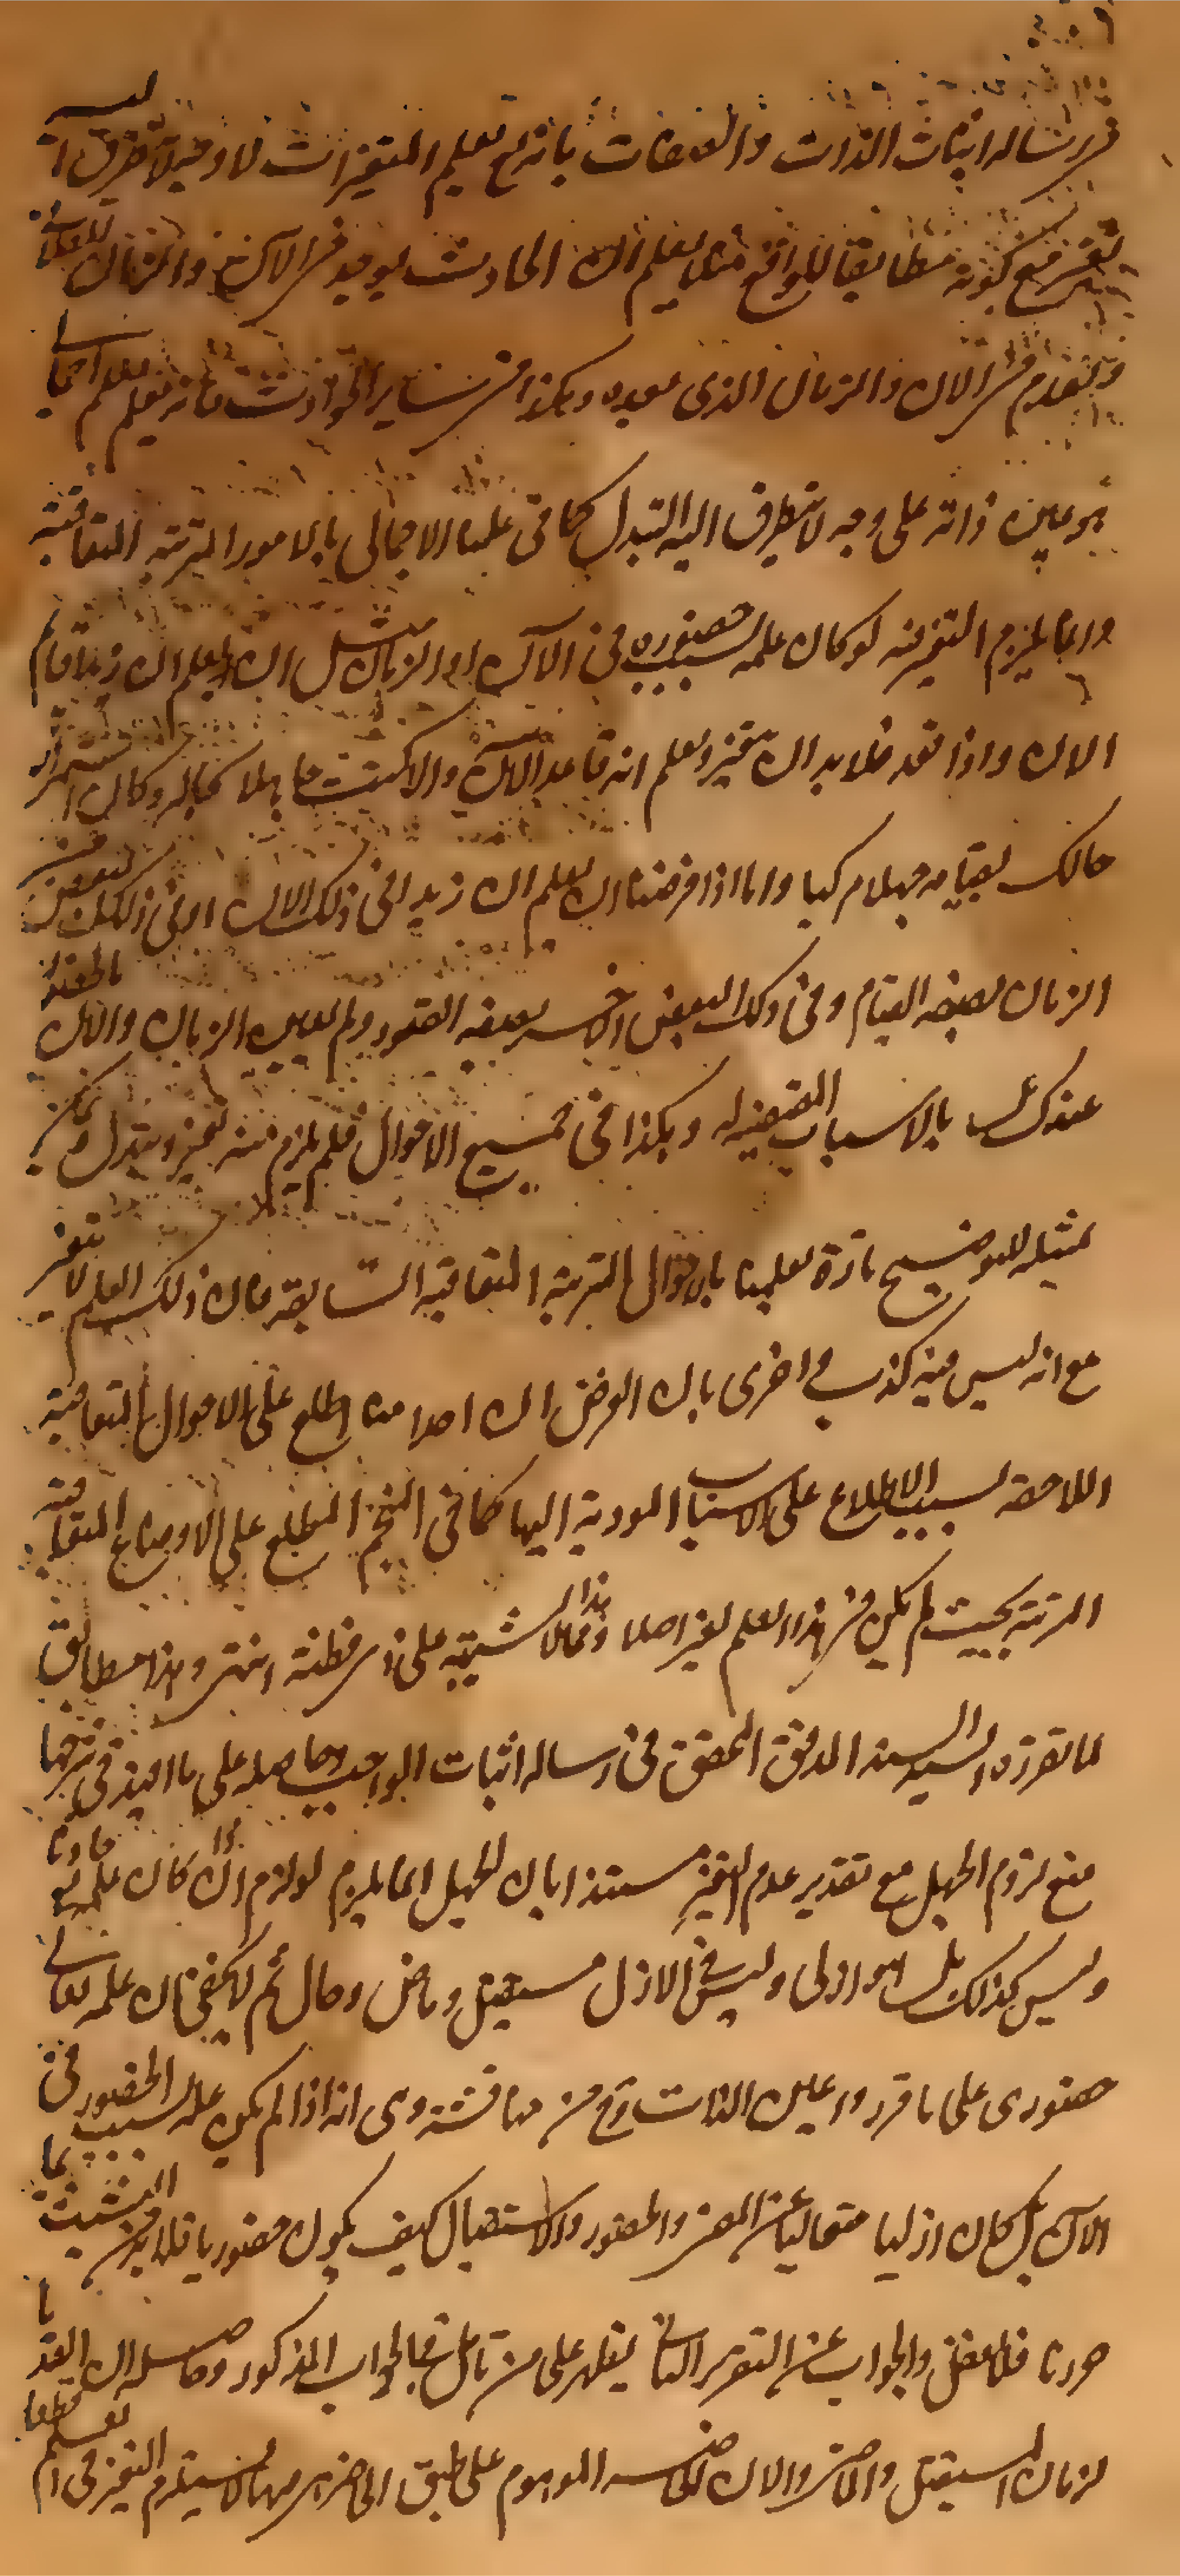 في رسالة اثبات الذات والصفات بانه مع تعليم المتغيرات لا وجه لا تطرق اليه
تغير مع كونه مطابقا للواقع مثلا يعلم ان الحادث يوجد في الآن والزمان
ويعدم في الان والزمان الذي بعده وهكذا في ساير الحوادث فانه يعلم بعلم اجمالي
هو عين ذاته على وجه لا يتطرق اليه التبدل كما في علمنا الاجمالي بالامور المترتبة المتعاقبة
وانما يلزم التغير منه لو كان علمه بسبب حضوره في الآن او الزمان مثل ان يعلم ان زيدا قايم
الان واذا قعد فلا بد ان يتغير ويعلم انه قاعد الآن والا كنت جاهلا بحاله وكان استمرار
حالك بقيامه جهلا مركبا واما اذا فرضنا ان يعلم ان زيدا في ذلك الان او في ذلك البعض من
الزمان بصفة القيام وفي ذلك البعض الآخر بصفة القعود ولم يعين الزمان والان بالحضور
عندك بل بالاسباب المقتضية له وهكذا في جميع الاحوال فلم يلزم منه تغير وتبدل ويمكن
تمثيله للتوضيح تارة بعلمنا بالاحوال المترتبة المتعاقبة السابقة فان ذلك العلم لا يتغير
مع انه ليس فيه كذب واخرى بان الفرض ان احدا منا اطلع على الاحوال المتعاقبة
اللاحقة بسبب الاطلاع على الاسباب المودية اليها كما في المنجم المطلع على الاوضاع المتعاقبة
المرتبة بحيث لم يكن في هذا العلم تغير اصلا وهذا مما لا يشتبه على ذي فطنة انتهى وهذا مطابق
لما تقرره السيد السند المدقق المحقق في رسالة اثبات الواجب وحاصله على ما افيد في شرحها
منع لزوم الجهل مع تقدير عدم التغير مستندا بان الجهل انما يلزم لو لزم اذا كان علمه حادثا
وليس كذلك بل هو ازلي وليس في الازل مستقبل وماض وحال ثم لا يخفى ان علمه تعالى
حضوري على ما قرر وعين الذات مناقشة وهي انه اذا لم يكن علمه بسبب الحضور في
الآن بل كان ازليا متعاليا عن المضي والحضور والاستقبال كيف يكون حضوريا فلا بد من التشبث بما
حررنا فلا تغفل والجواب عن التقرير الثاني يظهر على من تأمل في الجواب المذكور وحاصله ان العقد
لزمان المستقبل والماضي والان الحاضر الموهوم على طبق لا يستلزم التغير في العلم قطعا